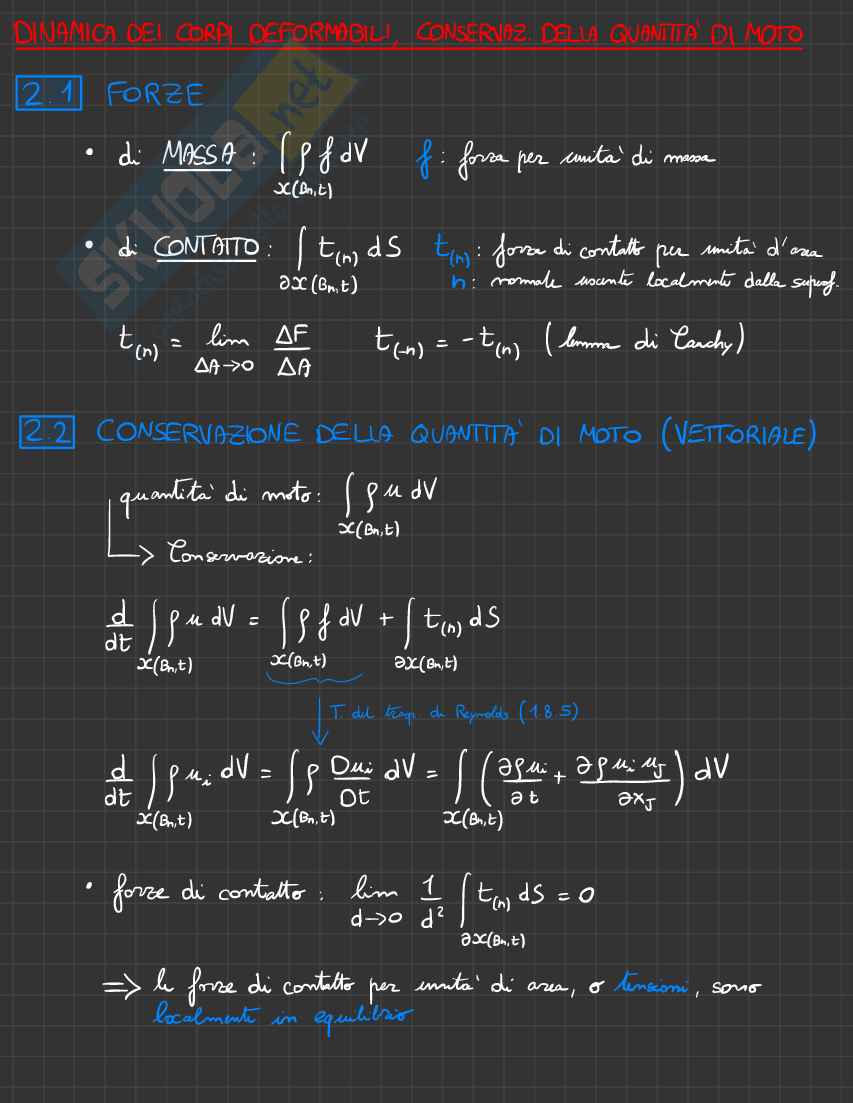 DINAMICA DEI CORPI DEFORMABILI, CONSERVAZ. DELLA QUANTITA' DI MOTO
2.1 FORZE
• di MASSA: ∫_{x(Bn,t)} ρ f dV f: forza per unita' di massa
• di CONTATTO: ∫_{∂x(Bn,t)} t_(n) dS t_(n): forza di contatto per unita' d'area
n: normale uscente localmente dalla superf.
t_(n) = lim_{ΔA→0} ΔF/ΔA t_(-n) = -t_(n) (lemma di Cauchy)
2.2 CONSERVAZIONE DELLA QUANTITA' DI MOTO (VETTORIALE)
quantita' di moto: ∫_{x(Bn,t)} ρ u dV
→ Conservazione:
d/dt ∫_{x(Bn,t)} ρ u dV = ∫_{x(Bn,t)} ρ f dV + ∫_{∂x(Bn,t)} t_(n) dS
T. del trasp. di Reynolds (1.8.5)
d/dt ∫_{x(Bn,t)} ρ u_i dV = ∫_{x(Bn,t)} ρ Du_i/Dt dV = ∫_{x(Bn,t)} (∂ρu_i/∂t + ∂ρu_i u_J/∂x_J) dV
• forze di contatto: lim_{d→0} 1/d² ∫_{∂x(Bn,t)} t_(n) dS = 0
⇒ le forze di contatto per unita' di area, o tensioni, sono
localmente in equilibrio
SKUOLA.net